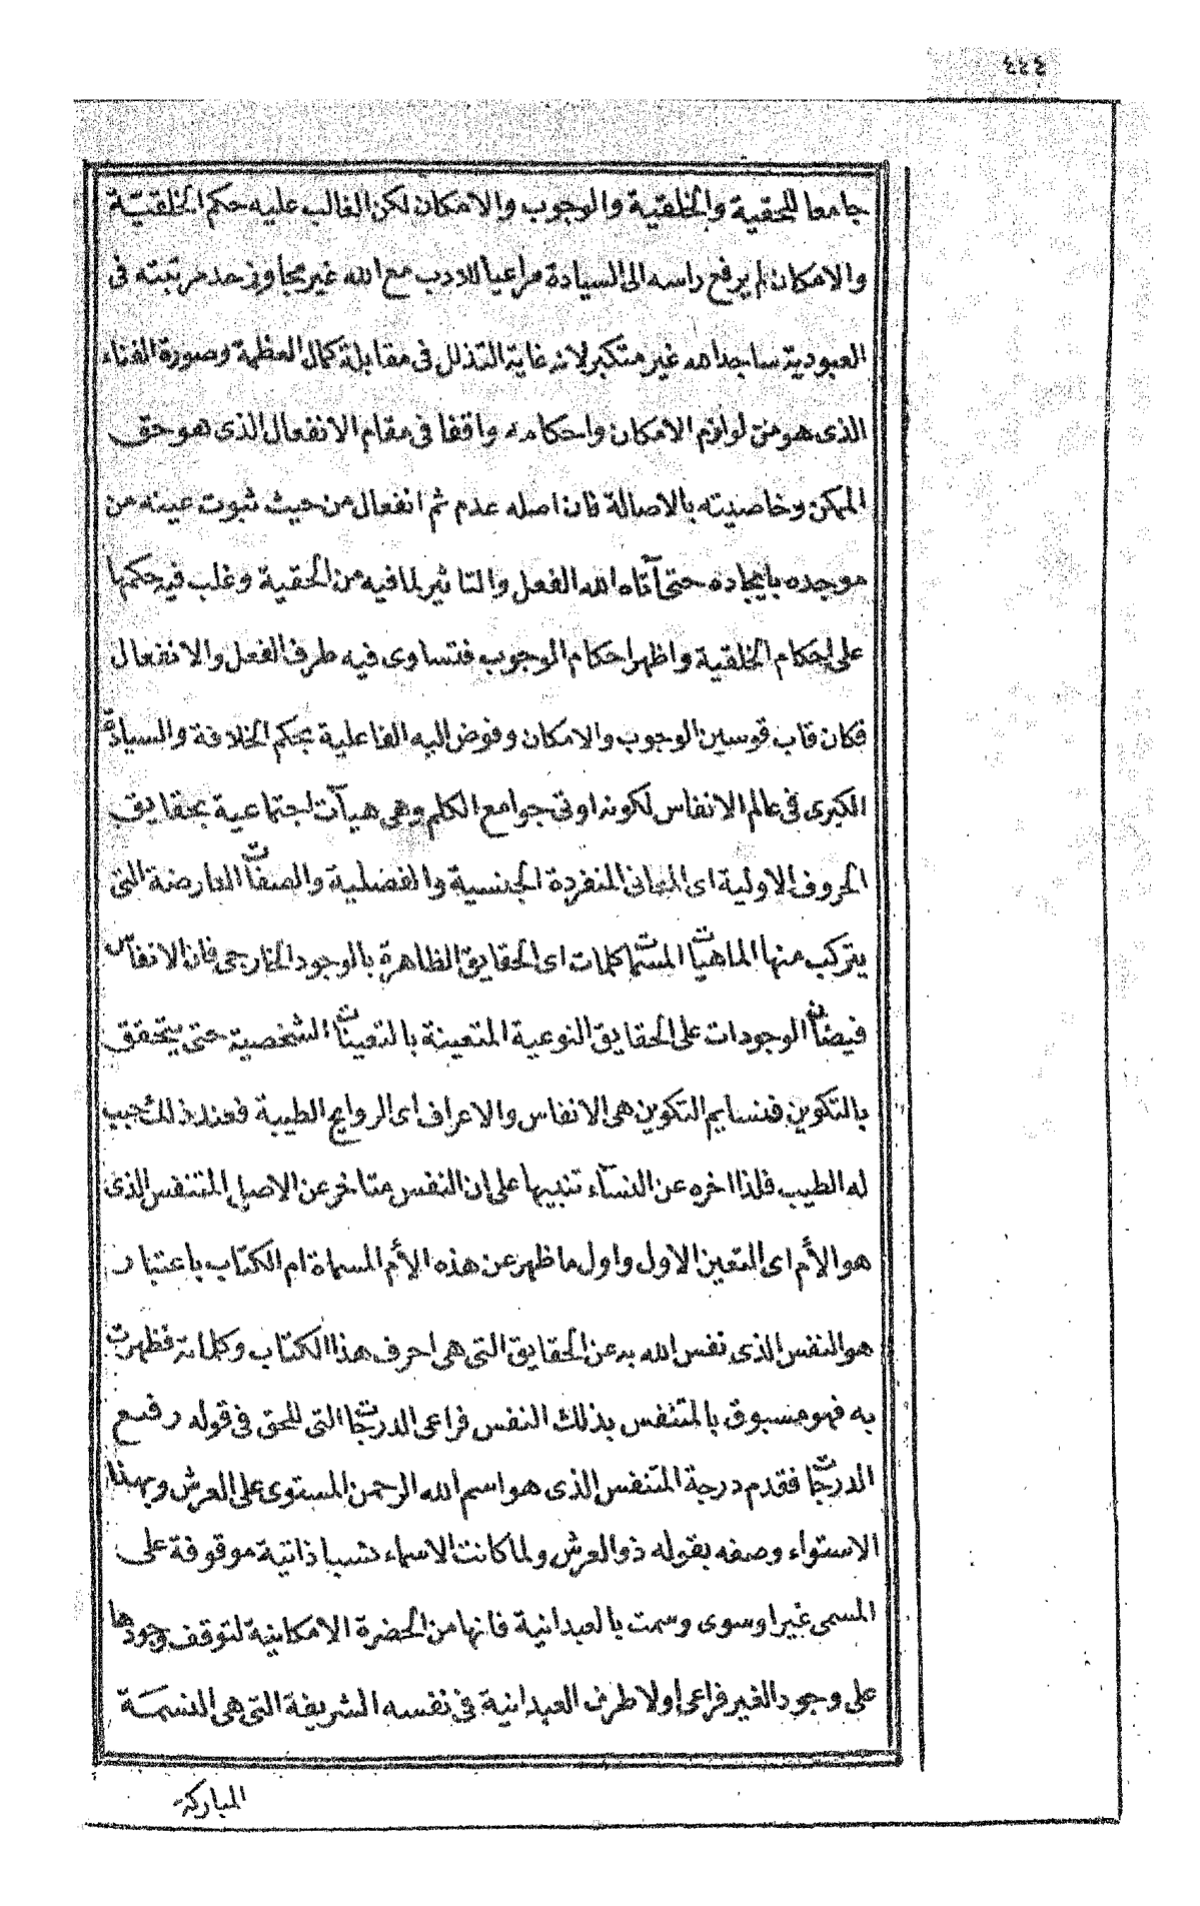 ٤٤٤
جامعا للحقية والخلقية والوجوب والامكان لكن الغالب عليه حكم الخلقيّة
والامكان لم يرفع راسه الى السيادة مراعيا للادب مع الله غير مجاوز حد مرتبته فى
العبودية ساجدا لله غير متكبر لانه غاية التذلل فى مقابلة كمال العظمة وصورة الفناء
الذى هو من لوازم الامكان واحكامه واقفا فى مقام الانفعال الذى هو حق
الممكن وخاصيته بالاصالة فان اصله عدم ثم انفعال من حيث ثبوت عينه من
موجده بايجاده حتى آتاه الله الفعل والتاثير لما فيه من الحقية وغلب فيه حكمها
على احكام الخلقية واظهر احكام الوجوب فتساوى فيه طرف الفعل والانفعال
فكان قاب قوسين الوجوب والامكان وفوض اليه الفاعلية بحكم الخلافة والسيادة
الكبرى فى عالم الانفاس لكونه اوتى جوامع الكلم وهى هيآت اجتماعية بحقايق
الحروف الاولية اى المعانى المنفردة الجنسية والفصلية والصفات العارضة التى
يتركب منها الماهيات المسمات كلمات اى الحقايق الظاهرة بالوجود الخارجى فان الانفاس
فيضات الوجودات على الحقايق النوعية المتعينة بالتعينات الشخصية حتى يتحقق
بالتكوين فنسايم التكوين هى الانفاس والاعراف اى الروايح الطيبة فعند ذلك حبب
له الطيب فلذا اخره عن النسآء تنبيها على ان النفس متاخر عن الاصل المتنفس الذى
هو الأم اى التعين الاول واول ما ظهر عن هذه الأم المسماة ام الكتاب باعتبار
هو النفس الذى نفس الله به عن الحقايق التى هى احرف هذا الكتاب وكلماته فظهرت
به فهو مسبوق بالمتنفس بذلك النفس فراعى الدرجات التى للحق فى قوله رفيع
الدرجات فقدم درجة المتنفس الذى هو اسم الله الرحمن المستوى على العرش وبهذا
الاستواء وصفه بقوله ذو العرش ولما كانت الاسماء نسبا ذاتية موقوفة على
المسمى غيرا وسوى وسمت بالعبدانية فانها من الحضرة الامكانية لتوقف وجودها
على وجود الغير فراعى اولا طرف العبدانية فى نفسه الشريفة التى هى النسمَة
المباركة